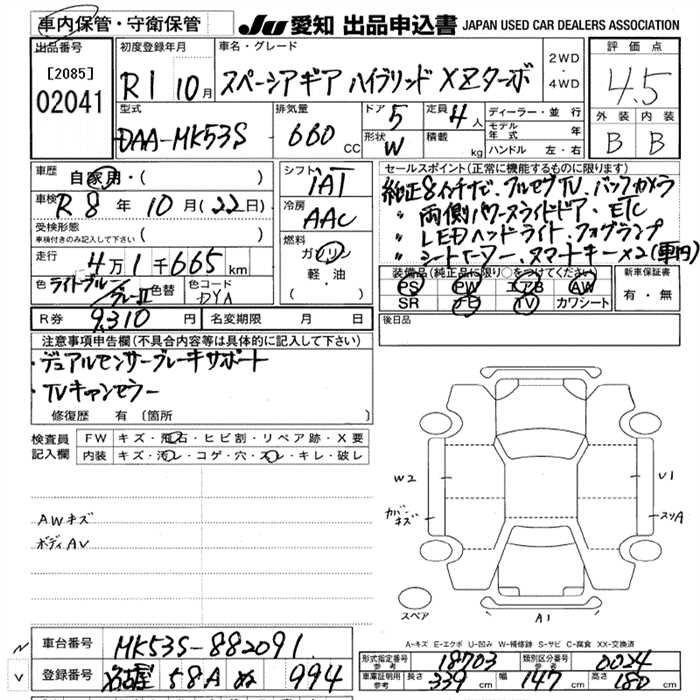 車内保管・守衛保管
JU 愛知 出品申込書 JAPAN USED CAR DEALERS ASSOCIATION
出品番号
[2085]
02041
初度登録年月
R1 10月
車名・グレード
スペーシアギア ハイブリッド XZターボ
2WD
・
4WD
評価点
4.5
外装 内装
B B
型式
DAA-MK53S
排気量
660 CC
ドア
5
形状
W
定員
4人
積載
kg
ディーラー・並行
モデル年式 年
ハンドル 左・右
車歴
自家用・( )
車検
R8年10月(22日)
受検形態
車検付きのみ記入して下さい ( )
走行
4万1千665km
色 ライトブルー/グレーII 色替 色コード DYA
シフト
IAT
冷房
AAC
燃料
ガソリン
軽・油
( )
R券 9,310円 名変期限 月 日
セールスポイント(正常に機能するものに限ります)
純正8インチナビ、フルセグTV、バックカメラ
〃 両側パワースライドドア・ETC
〃 LEDヘッドライト、フォグランプ
〃 シートヒーター、スマートキー×2(車内)
装備品(純正品に限り○をつけてください)
PS PW エアB AW
SR ナビ TV カワシート
新車保証書
有・無
後日品
注意事項申告欄(不具合内容等は具体的に記入して下さい)
・デュアルセンサーブレーキサポート
・TVキャンセラー
修復歴 有 〔箇所
検査員記入欄
FW キズ・飛石・ヒビ割・リペア跡・X要
内装 キズ・汚レ・コゲ・穴・スレ・キレ・破レ
AWキズ
ボディAV
W2
カバーキズ
V1
スリA
スペア
A1
A-キズ E-エクボ U-凹み W-補修跡 S-サビ C-腐食 XX-交換済
車台番号 MK53S-882091
登録番号 名古屋 58A ぬ 994
形式指定番号 参考 18703 類別区分番号 参考 0024
車庫証明用 参考 長さ 339cm 幅 147cm 高さ 180cm